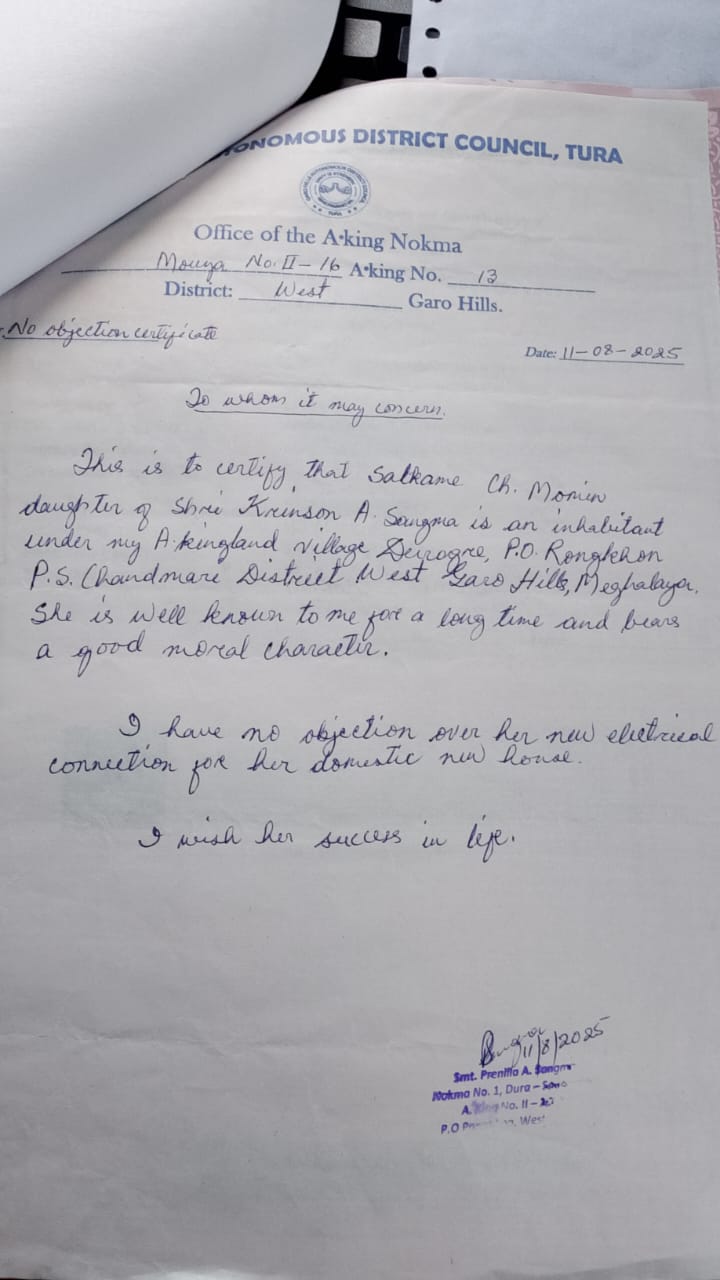 AUTONOMOUS DISTRICT COUNCIL, TURA
TURA
Office of the A·king Nokma
Mouza No. II - 16 A·king No. 13
District: West Garo Hills.
No objection certificate
Date: 11-08-2025
To whom it may concern.
This is to certify that Salkame Ch. Momin
daughter of Shri Krinson A. Sangma is an inhabitant
under my A·kingland village P.O. Rongkhon
P.S. Chandmari District West Garo Hills, Meghalaya.
She is well known to me for a long time and bears
a good moral character.
I have no objection over her new electrical
connection for her domestic new house.
I wish her success in life.
11/8/2025
Smt. Prenilla A. Sangma
Nokma No. 1, Dura -
A. King No. II -
P.O West